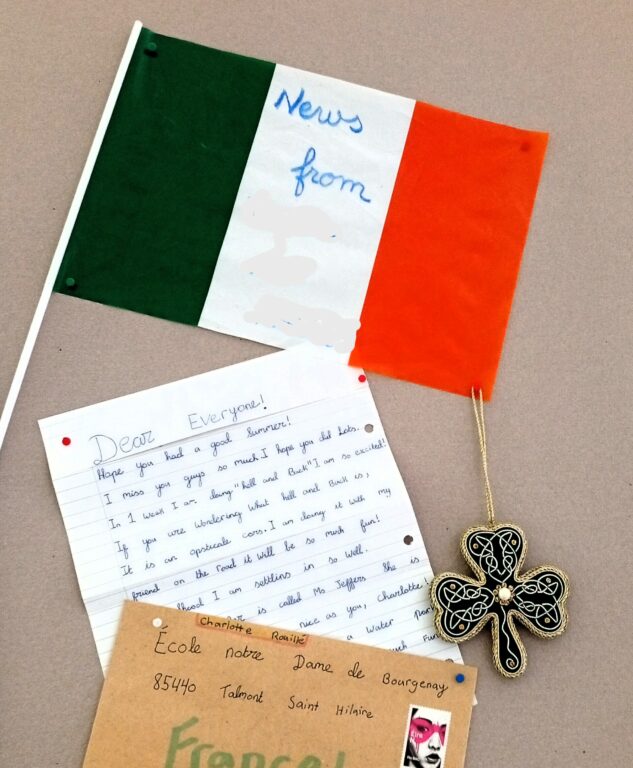 News
from
Dear Everyone!
Hope you had a good Summer!
I miss you guys so much I hope you did lots.
In 1 week I am doing "hell and Back" I am so excited!
If you are wondering what hell and Back is,
It is an opsticale cors. I am doing it with my
friend on the road it will be so much fun!
I am settling in so well.
is called Ms Jeffers She is
nice as you, Charlotte!
a water park
much Fun
Charlotte Rouillé
École notre Dame de Bourgenay
85440 Talmont Saint Hilaire
France!
Éire